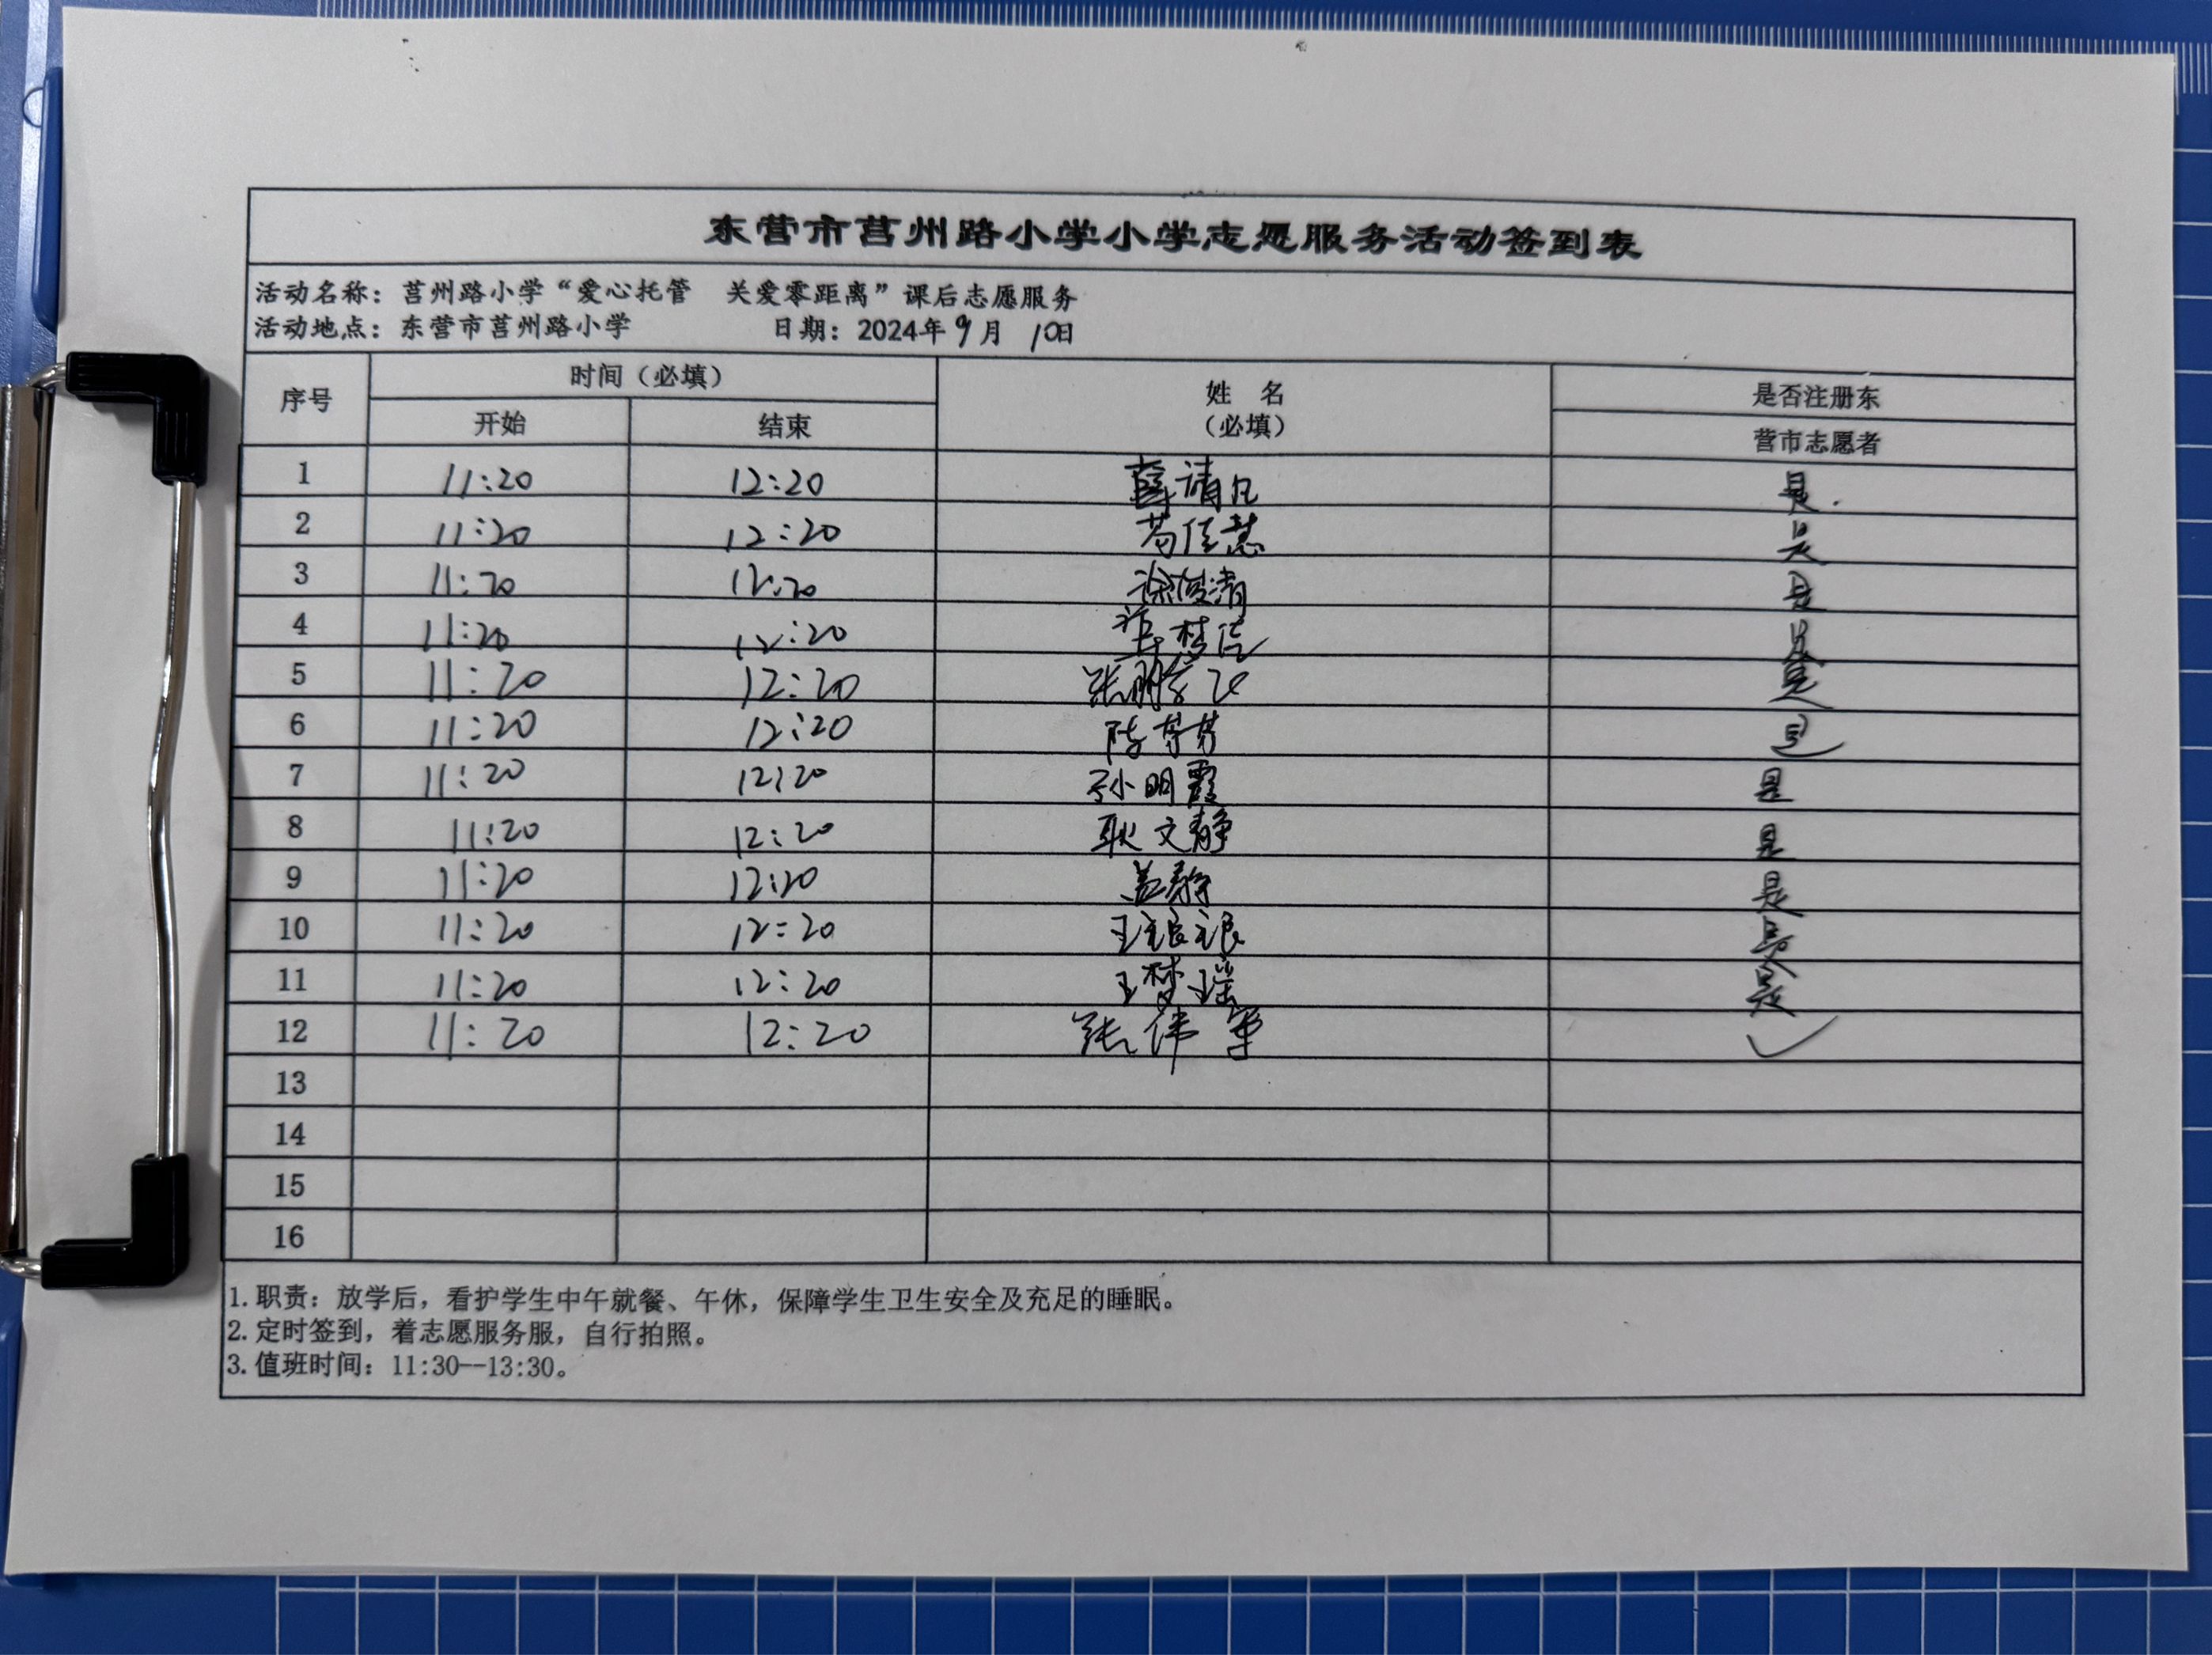 东营市莒州路小学小学志愿服务活动签到表
活动名称：莒州路小学“爱心托管 关爱零距离”课后志愿服务
活动地点：东营市莒州路小学 日期：2024年9月10日
序号 时间（必填） 姓 名 是否注册东
开始 结束 （必填） 营市志愿者
1 11:20 12:20 薛清凡 是.
2 11:20 12:20 苟佳慧 是
3 11:20 12:20 徐俊清 是
4 11:20 12:20 是
5 11:20 12:20 张鹏飞 是
6 11:20 12:20 陈芳芳 是
7 11:20 12:20 孙明霞 是
8 11:20 12:20 耿文静 是
9 11:20 12:20 盖静 是
10 11:20 12:20 王琅琅 是
11 11:20 12:20 王梦瑶 是
12 11:20 12:20 张伟军 ✓
13
14
15
16
1.职责：放学后，看护学生中午就餐、午休，保障学生卫生安全及充足的睡眠。
2.定时签到，着志愿服务服，自行拍照。
3.值班时间：11:30--13:30。